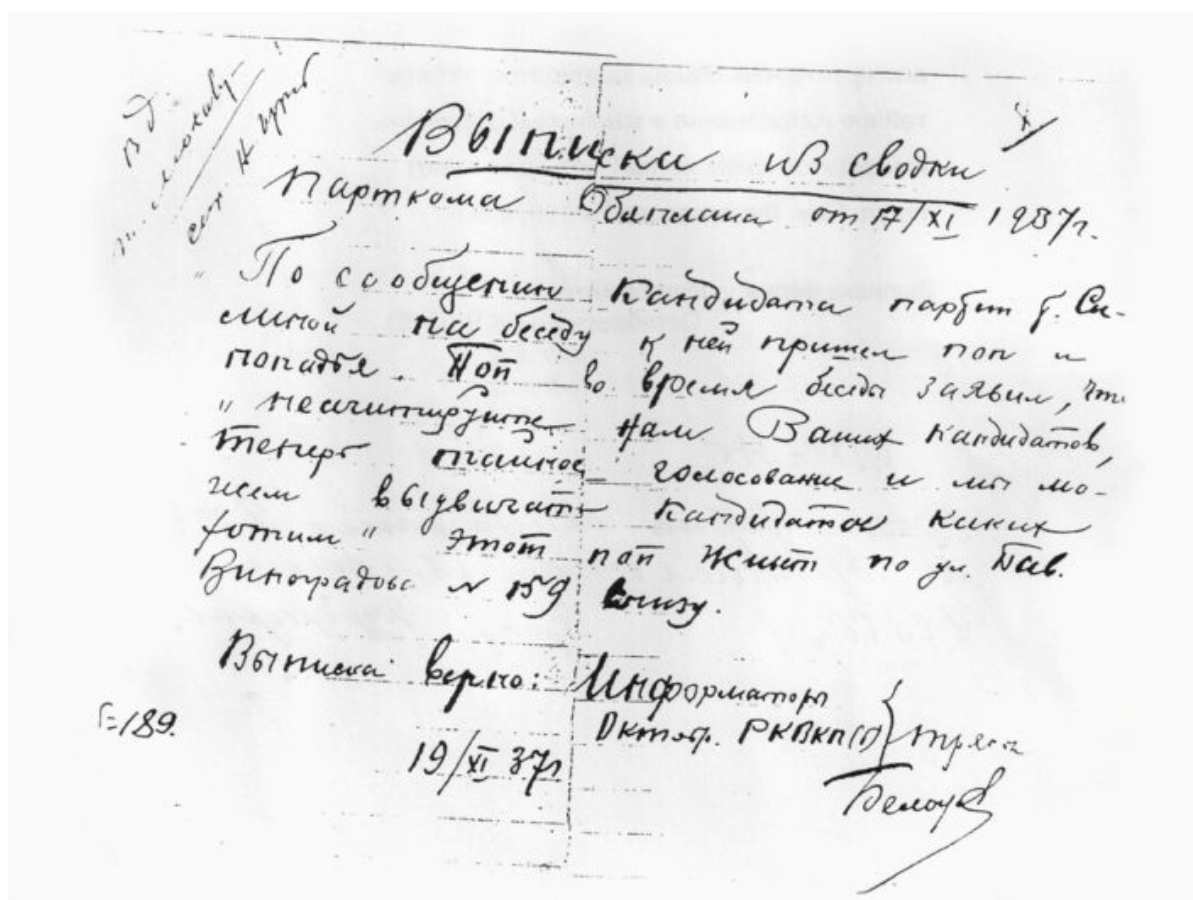 Выписка из сводки
Парткома Облплана от 17/XI 1937г.
"По сообщению кандидата партии т. Си-
линой на беседу к ней пришел поп и
попадья. Поп во время беседы заявил, что
"неагитируйте нам Ваших кандидатов,
теперь тайное голосование и мы мо-
жем выдвигать кандидатов каких
хотим" этот поп живет по ул. Пав.
Виноградова № 159 внизу.
Выписка верно: Информаторы
Октябр. РКВКП(б)
19/XI 37г
Г=189.